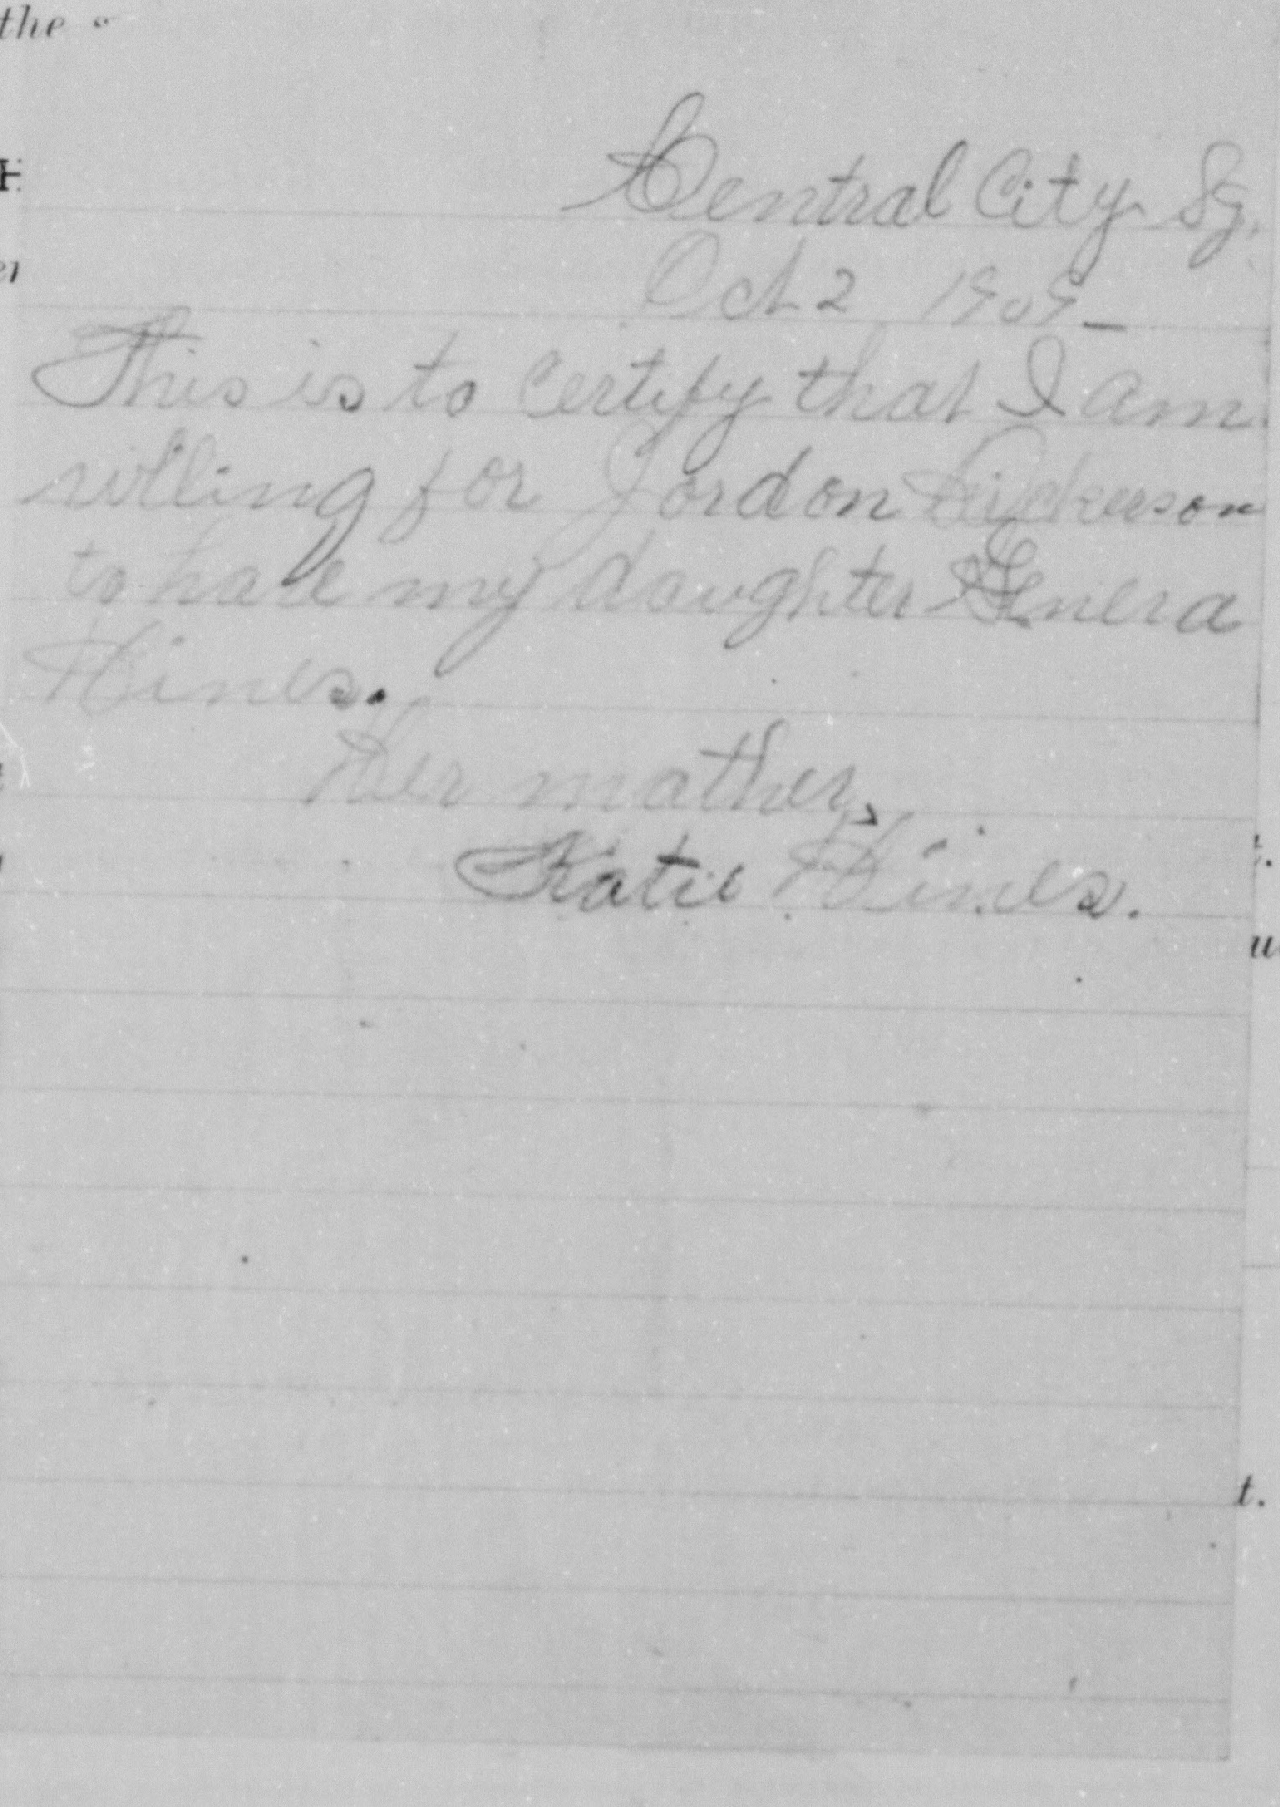 the
Central City Ky.
Oct 2 1909
This is to certify that I am
willing for Jordon Dickerson
to have my daughter Genera
Hines.
Her mather,
Katie Hines.
t.